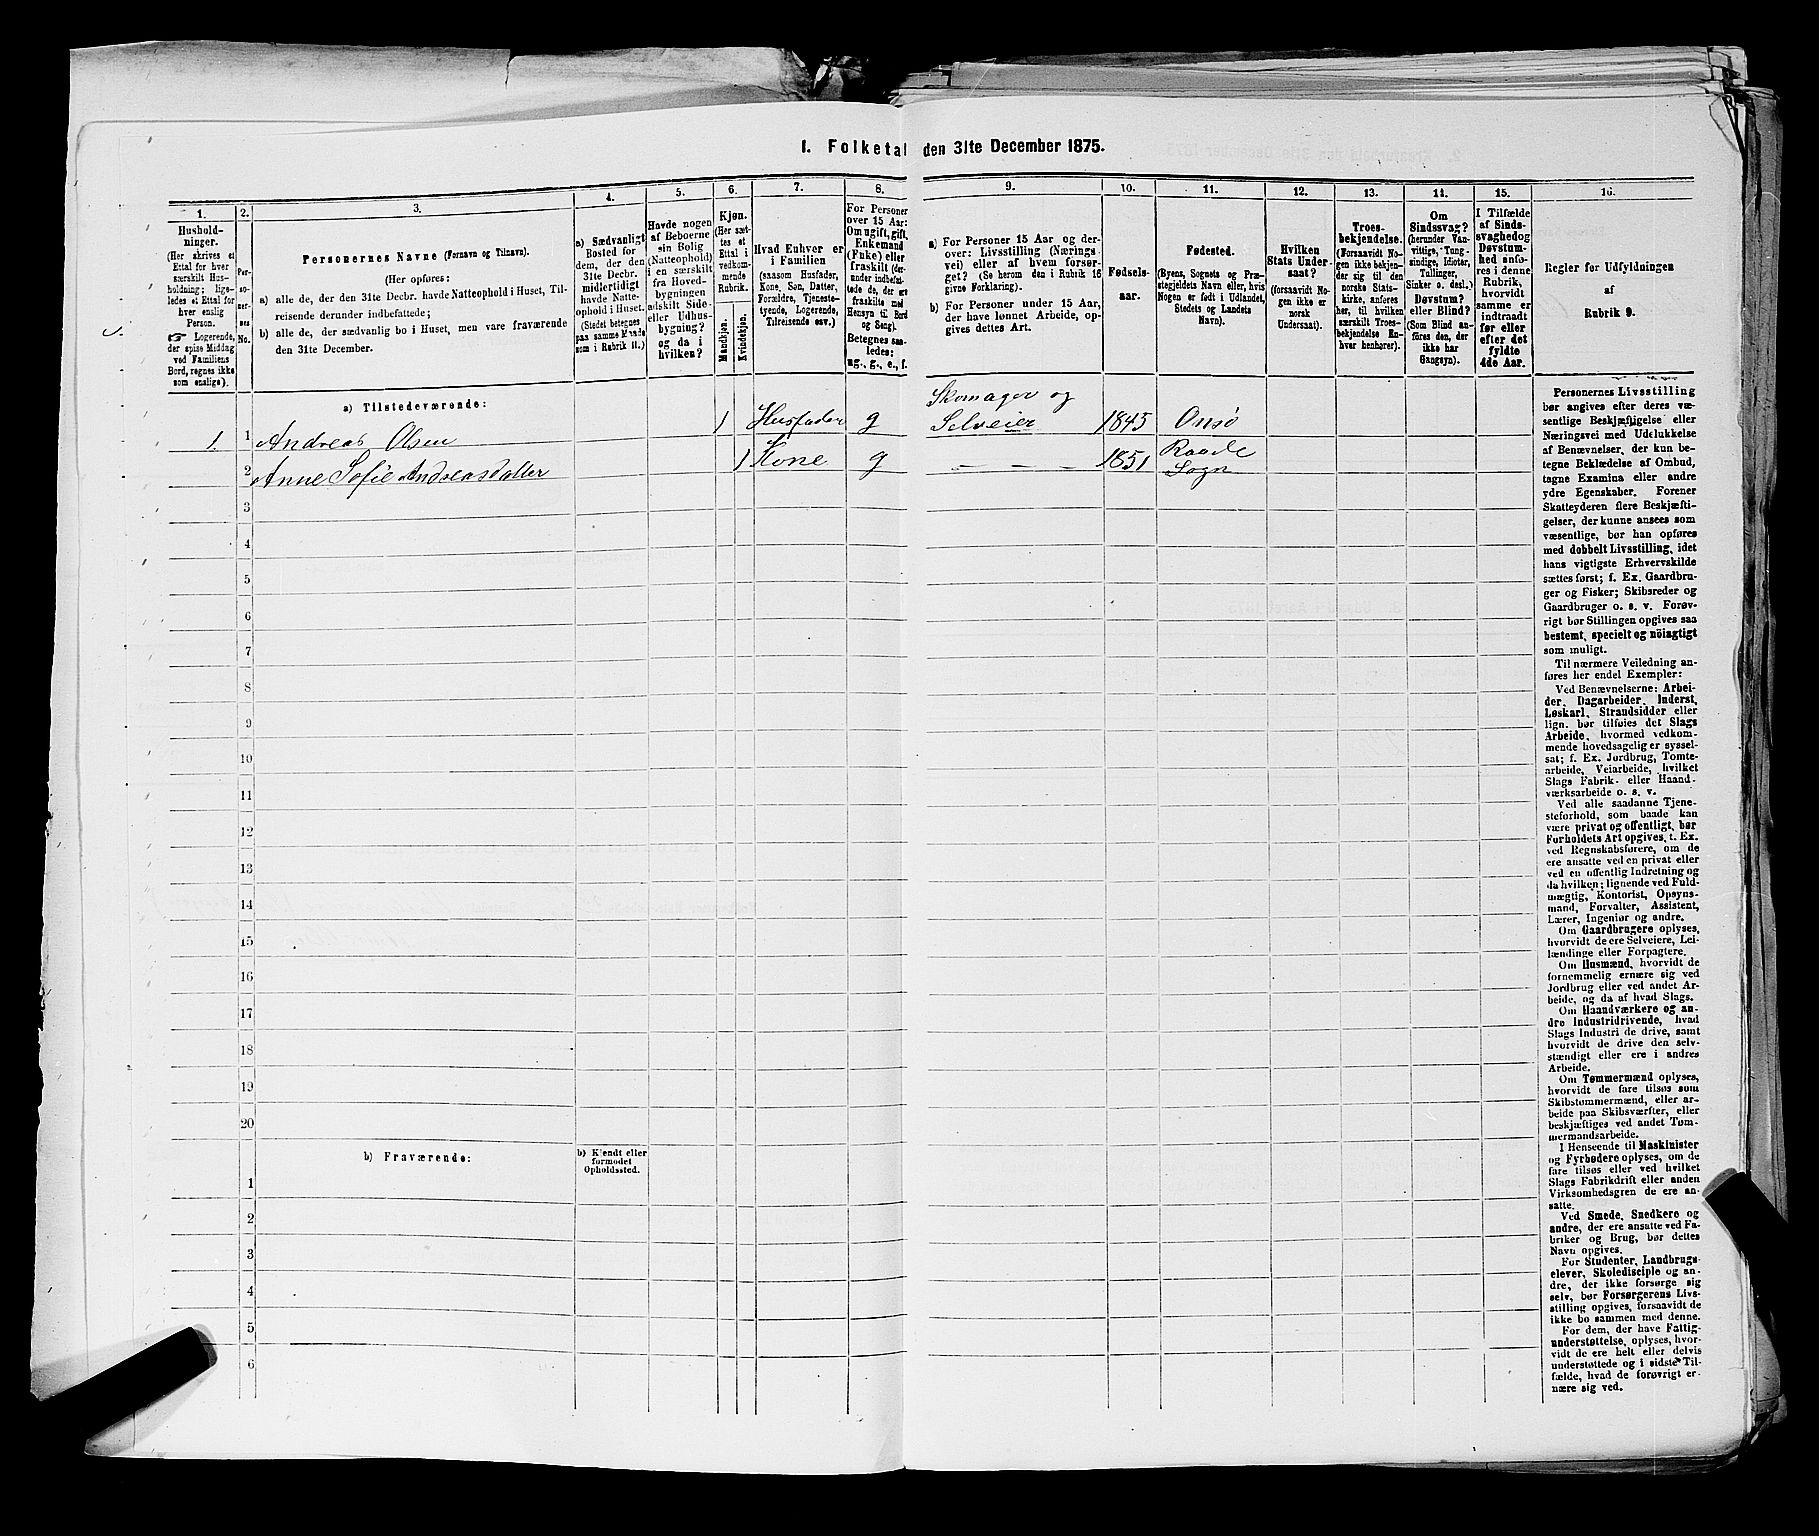 I. Folketal den 31te December 1875.
1.
Hushold-
ninger.
(Her skrives et
Ettal for hver
særskilt Hus-
holdning; lige-
ledes et Ettal for
hver enslig
Person.
☞ Logerende,
der spise Middag
ved Familiens
Bord, regnes ikke
som enslige).
2.
Per-
so-
ner-
nes
No.
3.
Personernes Navne (Fornavn og Tilnavn).
(Her opføres:
a) alle de, der den 31te Decbr. havde Natteophold i Huset, Til-
reisende derunder indbefattede;
b) alle de, der sædvanlig bo i Huset, men vare fraværende
den 31te December.
4.
a) Sædvanligt
Bosted for
dem, der den
31te Decbr.
midlertidigt
havde Natte-
ophold i Huset.
(Stedet betegnes
paa samme Maade
som i Rubrik 11.)
5.
Havde nogen
af Beboerne
sin Bolig
(Natteophold)
i en særskilt
fra Hoved-
bygningen
adskilt Side-
eller Udhus-
bygning?
og da i
hvilken?
6.
Kjøn.
(Her sæt-
tes et
Ettal i
vedkom-
mende
Rubrik.
Mandkjøn.
Kvindekjøn.
7.
Hvad Enhver er
i Familien
(saasom Husfader,
Kone, Søn, Datter,
Forældre, Tjeneste-
tyende, Logerende,
Tilreisende osv.)
8.
For Personer
over 15 Aar:
Om ugift, gift,
Enkemand
(Enke) eller
fraskilt (der-
under indbefat-
tede de, der ere
fraskilte med
Hensyn til Bord
og Seng).
Betegnes saa-
ledes:
ug., g., e., f.
9.
a) For Personer 15 Aar og der-
over: Livsstilling (Nærings-
vei) eller af hvem forsør-
get? (Se herom den i Rubrik 16
givne Forklaring).
b) For Personer under 15 Aar,
der have lønnet Arbeide, op-
gives dettes Art.
10.
Fødsels-
aar.
11.
Fødested.
(Byens, Sognets og Præ-
stegjeldets Navn eller, hvis
Nogen er født i Udlandet,
Stedets og Landets
Navn).
12.
Hvilken
Stats Under-
saat?
(forsaavidt No-
gen ikke er
norsk
Undersaat).
13.
Troes-
bekjendelse.
(Forsaavidt No-
gen ikke bekjen-
der sig til den
norske Stats-
kirke, anføres
her, til hvilken
særskilt Troes-
bekjendelse En-
hver henhører).
14.
Om
Sindssvag?
(herunder Van-
vittige, Tung-
sindige, Idioter,
Tullinger,
Sinker o. desl.)
Døvstum?
eller Blind?
(Som Blind an-
føres den, der
ikke har
Gangsyn).
15.
I Tilfælde
af Sinds-
svaghed og
Døvstum-
hed anfø-
res i denne
Rubrik,
hvorvidt
samme er
indtraadt
før eller
efter det
fyldte
4de Aar.
16.
Regler for Udfyldningen
af
Rubrik 9.
a) Tilstedeværende:
1. 1 Andreas Olsen 1 Husfader g Skomager og Selveier 1845 Onsø
2 Anne Sofie Andreasdatter 1 Kone g — — — 1851 Raade Sogn
3
4
5
6
7
8
9
10
11
12
13
14
15
16
17
18
19
20
b) Fraværende:
b) Kjendt eller
formodet
Opholdssted.
1
2
3
4
5
6
Personernes Livsstilling
bør angives efter deres væ-
sentlige Beskjæftigelse eller
Næringsvei med Udelukkelse
af Benævnelser, der kun be-
tegne Beklædelse af Ombud,
tagne Examina eller andre
ydre Egenskaber. Forener
Skatteyderen flere Beskjæfti-
gelser, der kunne ansees som
væsentlige, bør han opføres
med dobbelt Livsstilling, idet
hans vigtigste Erhvervskilde
sættes først; f. Ex. Gaardbru-
ger og Fisker; Skibsreder og
Gaardbruger o. s. v. Forøv-
rigt bør Stillingen opgives saa
bestemt, specielt og nöiagtigt
som muligt.
Til nærmere Veiledning an-
føres her endel Exempler:
Ved Benævnelserne: Arbei-
der, Dagarbeider, Inderst,
Løskarl, Strandsidder eller
lign. bør tilføies det Slags
Arbeide, hvormed vedkom-
mende hovedsagelig er syssel-
sat; f. Ex. Jordbrug, Tomte-
arbeide, Veiarbeide, hvilket
Slags Fabrik- eller Haand-
værksarbeide o. s. v.
Ved alle saadanne Tjene-
steforhold, som baade kan
være privat og offentligt, bør
Forholdets Art opgives, t. Ex.
ved Regnskabsførere, om de
ere ansatte ved en privat eller
ved en offentlig Indretning og
da hvilken; lignende ved Fuld-
mægtig, Kontorist, Opsyns-
mand, Forvalter, Assistent,
Lærer, Ingeniør og andre.
Om Gaardbrugere oplyses,
hvorvidt de ere Selveiere, Lei-
lændinge eller Forpagtere.
Om Husmænd, hvorvidt de
fornemmelig ernære sig ved
Jordbrug eller ved andet Ar-
beide, og da af hvad Slags.
Om Haandværkere og an-
dre Industridrivende, hvad
Slags Industri de drive, samt
hvorvidt de drive den selv-
stændigt eller ere i andres
Arbeide.
Om Tømmermænd oplyses,
hvorvidt de fare tilsøs som
Skibstømmermænd, eller ar-
beide paa Skibsværfter, eller
beskjæftiges ved andet Tøm-
mermandsarbeide.
I Henseende til Maskinister
og Fyrbødere oplyses, om de
fare tilsøs eller ved hvilket
Slags Fabrikdrift eller anden
Virksomhedsgren de ere an-
satte.
Ved Smede, Snedkere og
andre, der ere ansatte ved Fa-
briker og Brug, bør dettes
Navn opgives.
For Studenter, Landbrugs-
elever, Skoledisciple og an-
dre, der ikke forsørge sig
selv, bør Forsørgerens Livs-
stilling opgives, forsaavidt de
ikke bo sammen med denne.
For dem, der have Fattig-
understøttelse, oplyses, hvor-
vidt de ere helt eller delvis
understøttede og i sidste Til-
fælde, hvad de forøvrigt er-
nære sig ved.